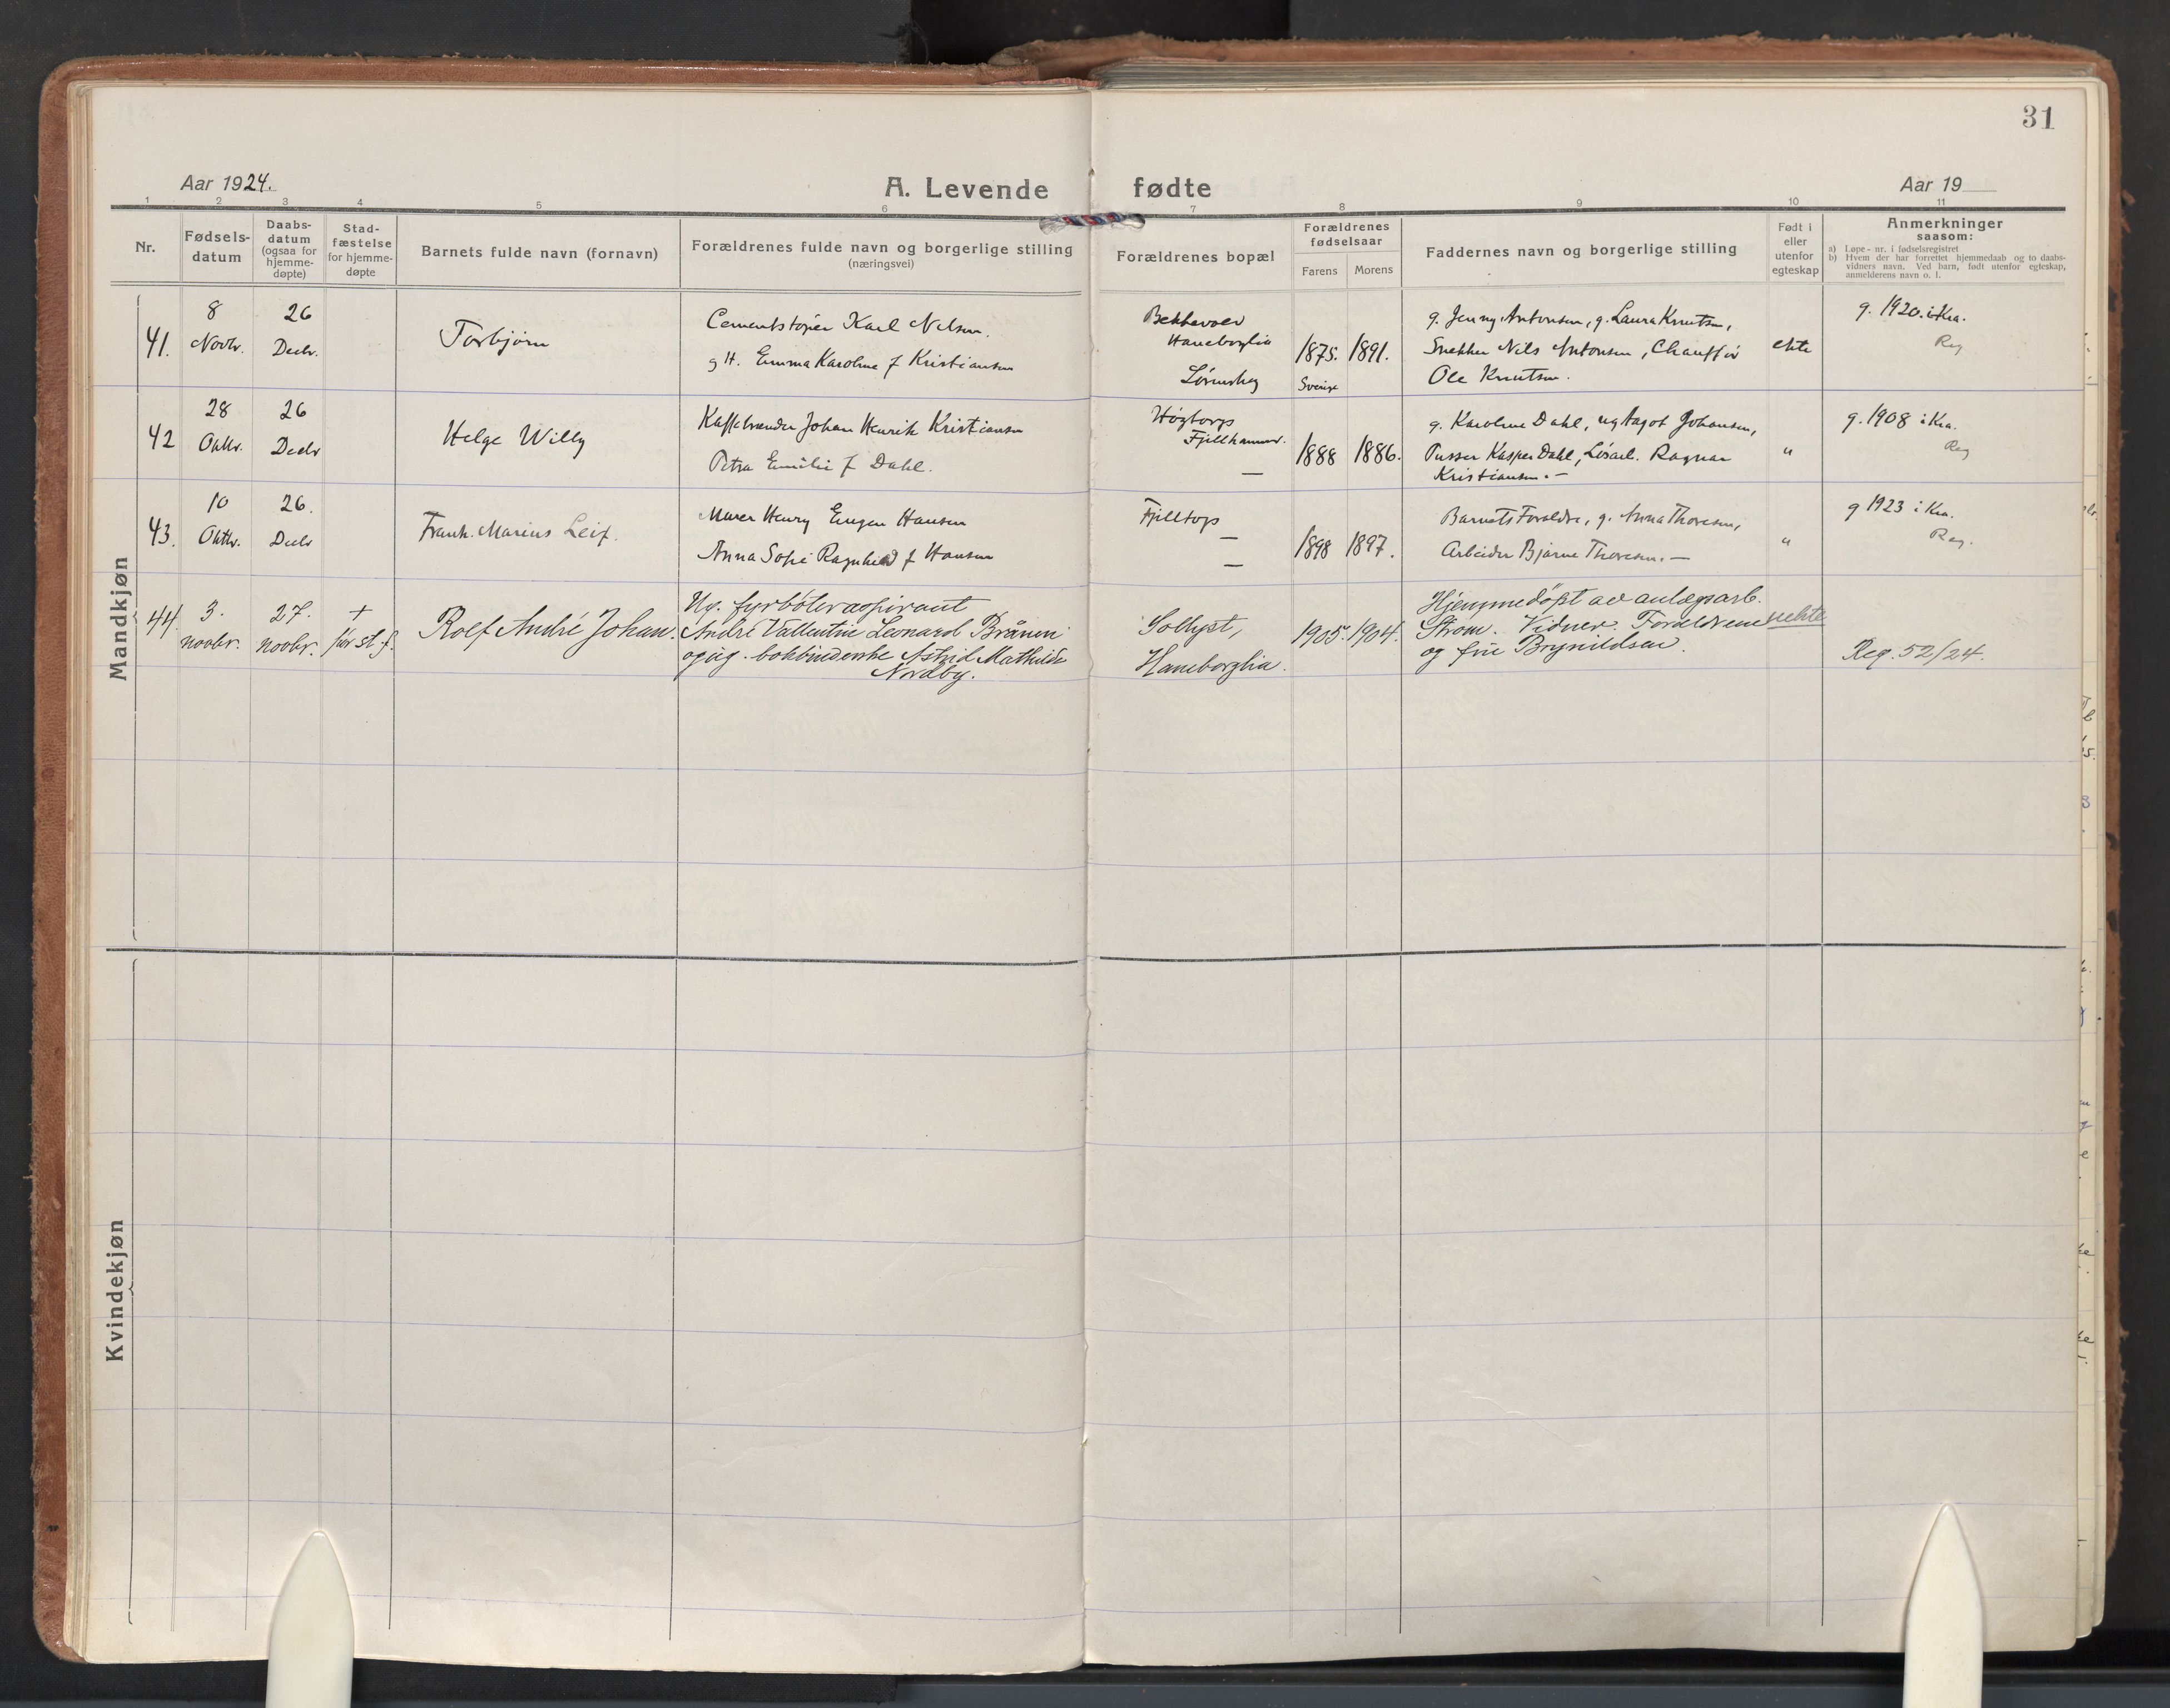 31
Aar 1924.
A. Levende fødte
Aar 19
1 2 3 4 5 6 7 8 9 10 11
Nr.
Fødsels-
datum
Daabs-
datum
(ogsaa for
hjemme-
døpte)
Stad-
fæstelse
for hjemme-
døpte
Barnets fulde navn (fornavn)
Forældrenes fulde navn og borgerlige stilling
(næringsvei)
Forældrenes bopæl
Forældrenes
fødselsaar
Farens Morens
Faddernes navn og borgerlige stilling
Født i
eller
utenfor
egteskap
Anmerkninger
saasom:
a) Løpe-nr. i fødselsregistret
b) Hvem der har forrettet hjemmedaab og to daabs-
vidners navn. Ved barn, født utenfor egteskap,
anmelderens navn o. l.
Mandkjøn
41.
8
Novbr.
26
Decbr.
Torbjørn
Cementstøper Karl Nelsen.
g H. Emma Karoline f Kristiansen
Bekkevold
Haneborglia
Lørenskog
1875. 1891.
Sverige
g. Jenny Antonsen, g. Laura Knutsen,
Snekker Nils Antonsen, Chauffør
Ole Knutsen.
ekte
g. 1920. i Kra.
Reg
42
28
Oktbr.
26
Decbr
Helge Willy
Kaffebrænder Johan Henrik Kristiansen
Petra Emilie f Dahl.
Høgtorp
Fjellhammer.
—
1888 1886.
g. Karoline Dahl, ug Aagot Johansen,
Pusser Kasper Dahl, Ragnar
Kristiansen. —
"
g. 1908 i Kra.
Reg
43.
10
Oktbr.
26.
Decbr
Frank. Marius Leif.
Murer Henry Eugen Hansen
Anna Sofie Ragnhild f Hansen
Fjelltop
—
—
1898 1897.
Barnets Foreldre, g. Anna Thoresen,
Arbeider Bjarne Thoresen. —
"
g 1923 i Kra.
Reg.
44
3.
novbr.
27.
novbr.
+
før st. f.
Rolf André Johan.
Ug. fyrbøteraspirant
André Vallentin Leonard Brånin
og ug. bokbinderske Astrid Mathilde
Nordby.
Solhyst,
Haneborglia.
1905. 1904.
Hjemmedøpt av anlægsarb.
Strøm. Vidner. Forældrene
og frue Brynildsen.
uekte
Reg. 52/24.
Kvindekjøn